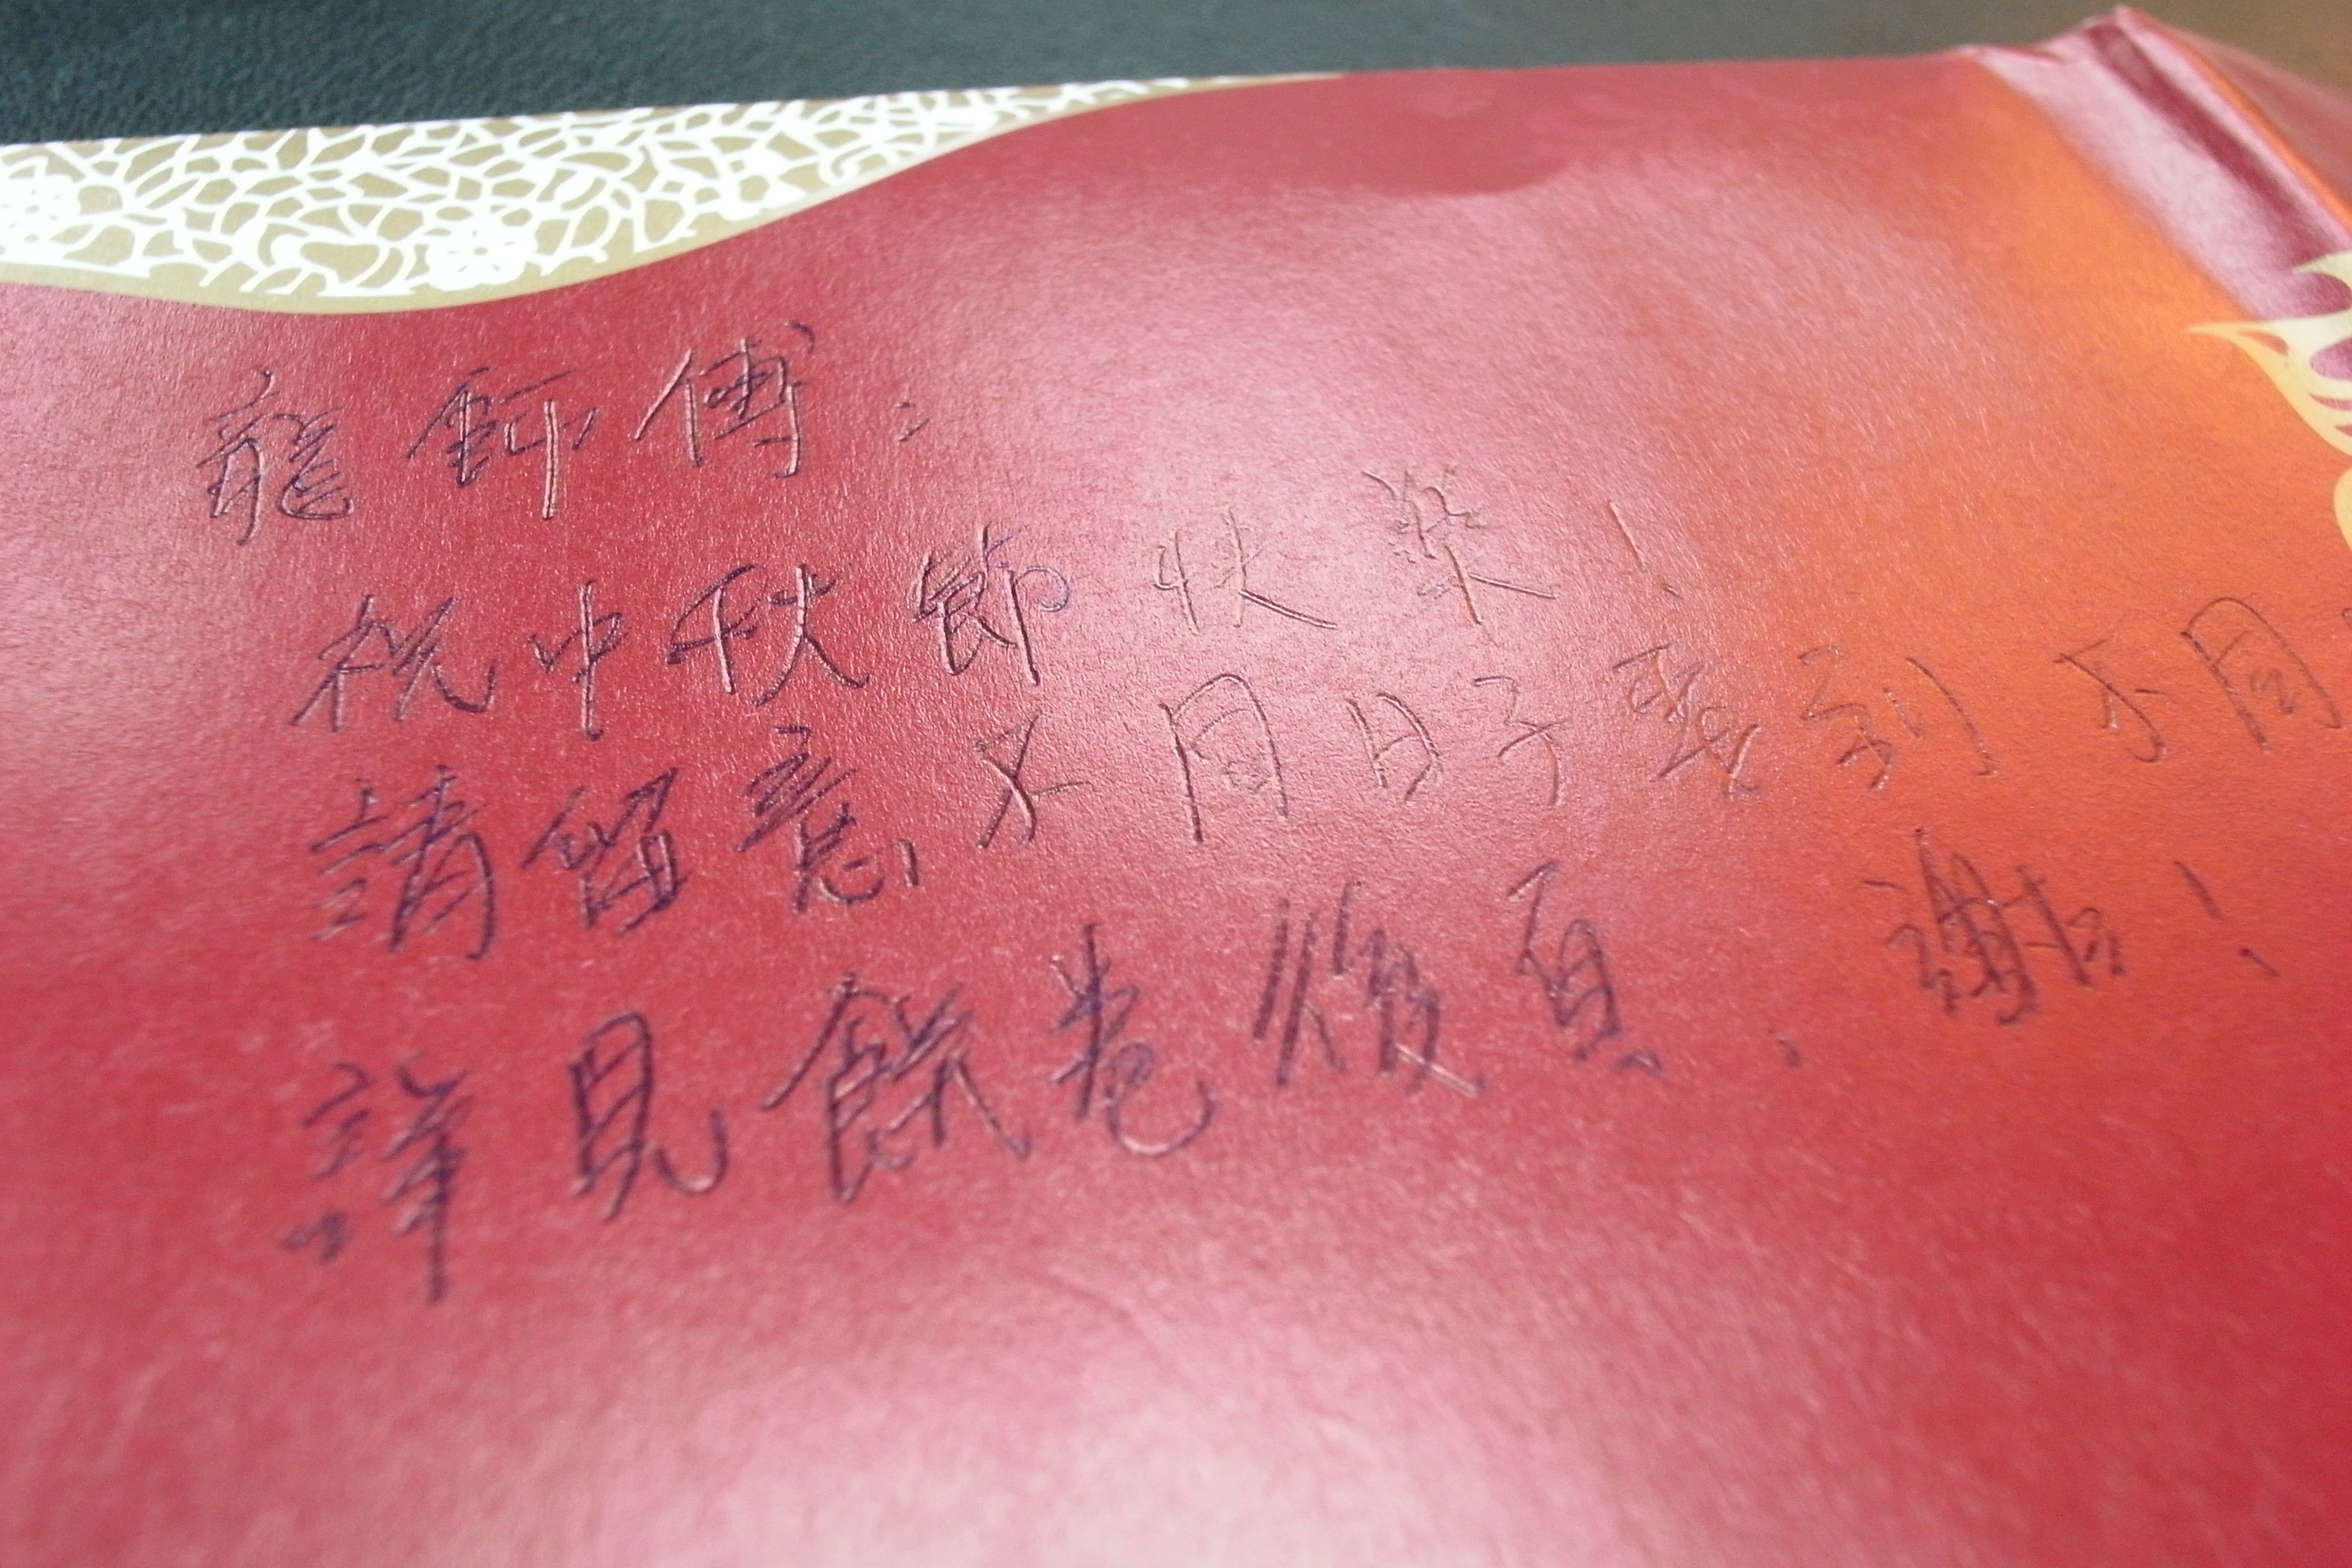 龍師傅：
祝中秋節快樂！
請留意不同日子要到不同
詳見餘卷後頁、謝謝！